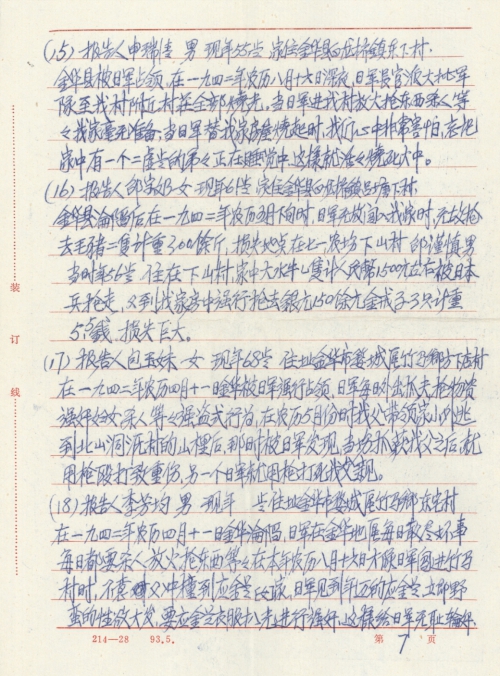 (15) 报告人申瑞清 男 现年55岁 家住金华县白龙桥镇东下村.
金华县被日军占领,在一九四二年农历八月十六日深夜,日军长官派大批军
队至我村附近村庄全部烧光,当日军进我村放火抢东西杀人等
々我家毫无准备,当日军替我家房屋烧起时,我们心中非常害怕,忘把
家中有一个二虚岁的弟々正在睡觉中,这样就活々烧死火中。
(16) 报告人 女 现年61岁 家住金华县白龙桥 下村.
金华县沦陷后在一九四二年农历 月下旬时,日军无故闯入我家时,无故抢
去毛猪二只计重300余斤,损失地点在七一农场下山村 邱谨慎男
当时年56岁 住在下山村,家中大水牛1只计人民币1500元左右被日本
兵抢走,又到我家房中强行抢去银元150余元金戒子3只计重
5.5钱,损失巨大。
(17) 报告人包玉妹 女 现年68岁 住址金华市婺城区竹马乡下 村
在一九四二年农历四月十一日金华被日军强行占领,日军每日外出抓夫抢物资
强奸妇女杀人等々强盗式行为,在农历5月份时我父带领家小外逃
到北山洞 村的山裡后,那时被日军发现,当场抓我父之后,就
用枪殴打致重伤,另一个日军就用枪打死我父亲.
(18) 报告人李芳均 男 现年 岁住址金华市婺城区竹马乡 村
在一九四二年农历四月十一日金华沦陷,日军在金华地区每日散尽坏事
每日都要杀人放火抢东西等々在本年农历八月十六日大队日军闯进竹马
村时,不幸 中撞到应金兰的 ,日军见到年 的应金兰立即野
蛮的性欲大发,要应金兰衣服扒光进行强奸,这样给日军无耻轮奸.
装
订
线
214—28 93.5.
第 7 页